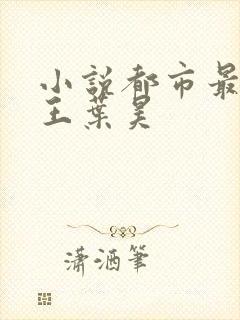 小說都市最
王葉昊
瀟酒筆